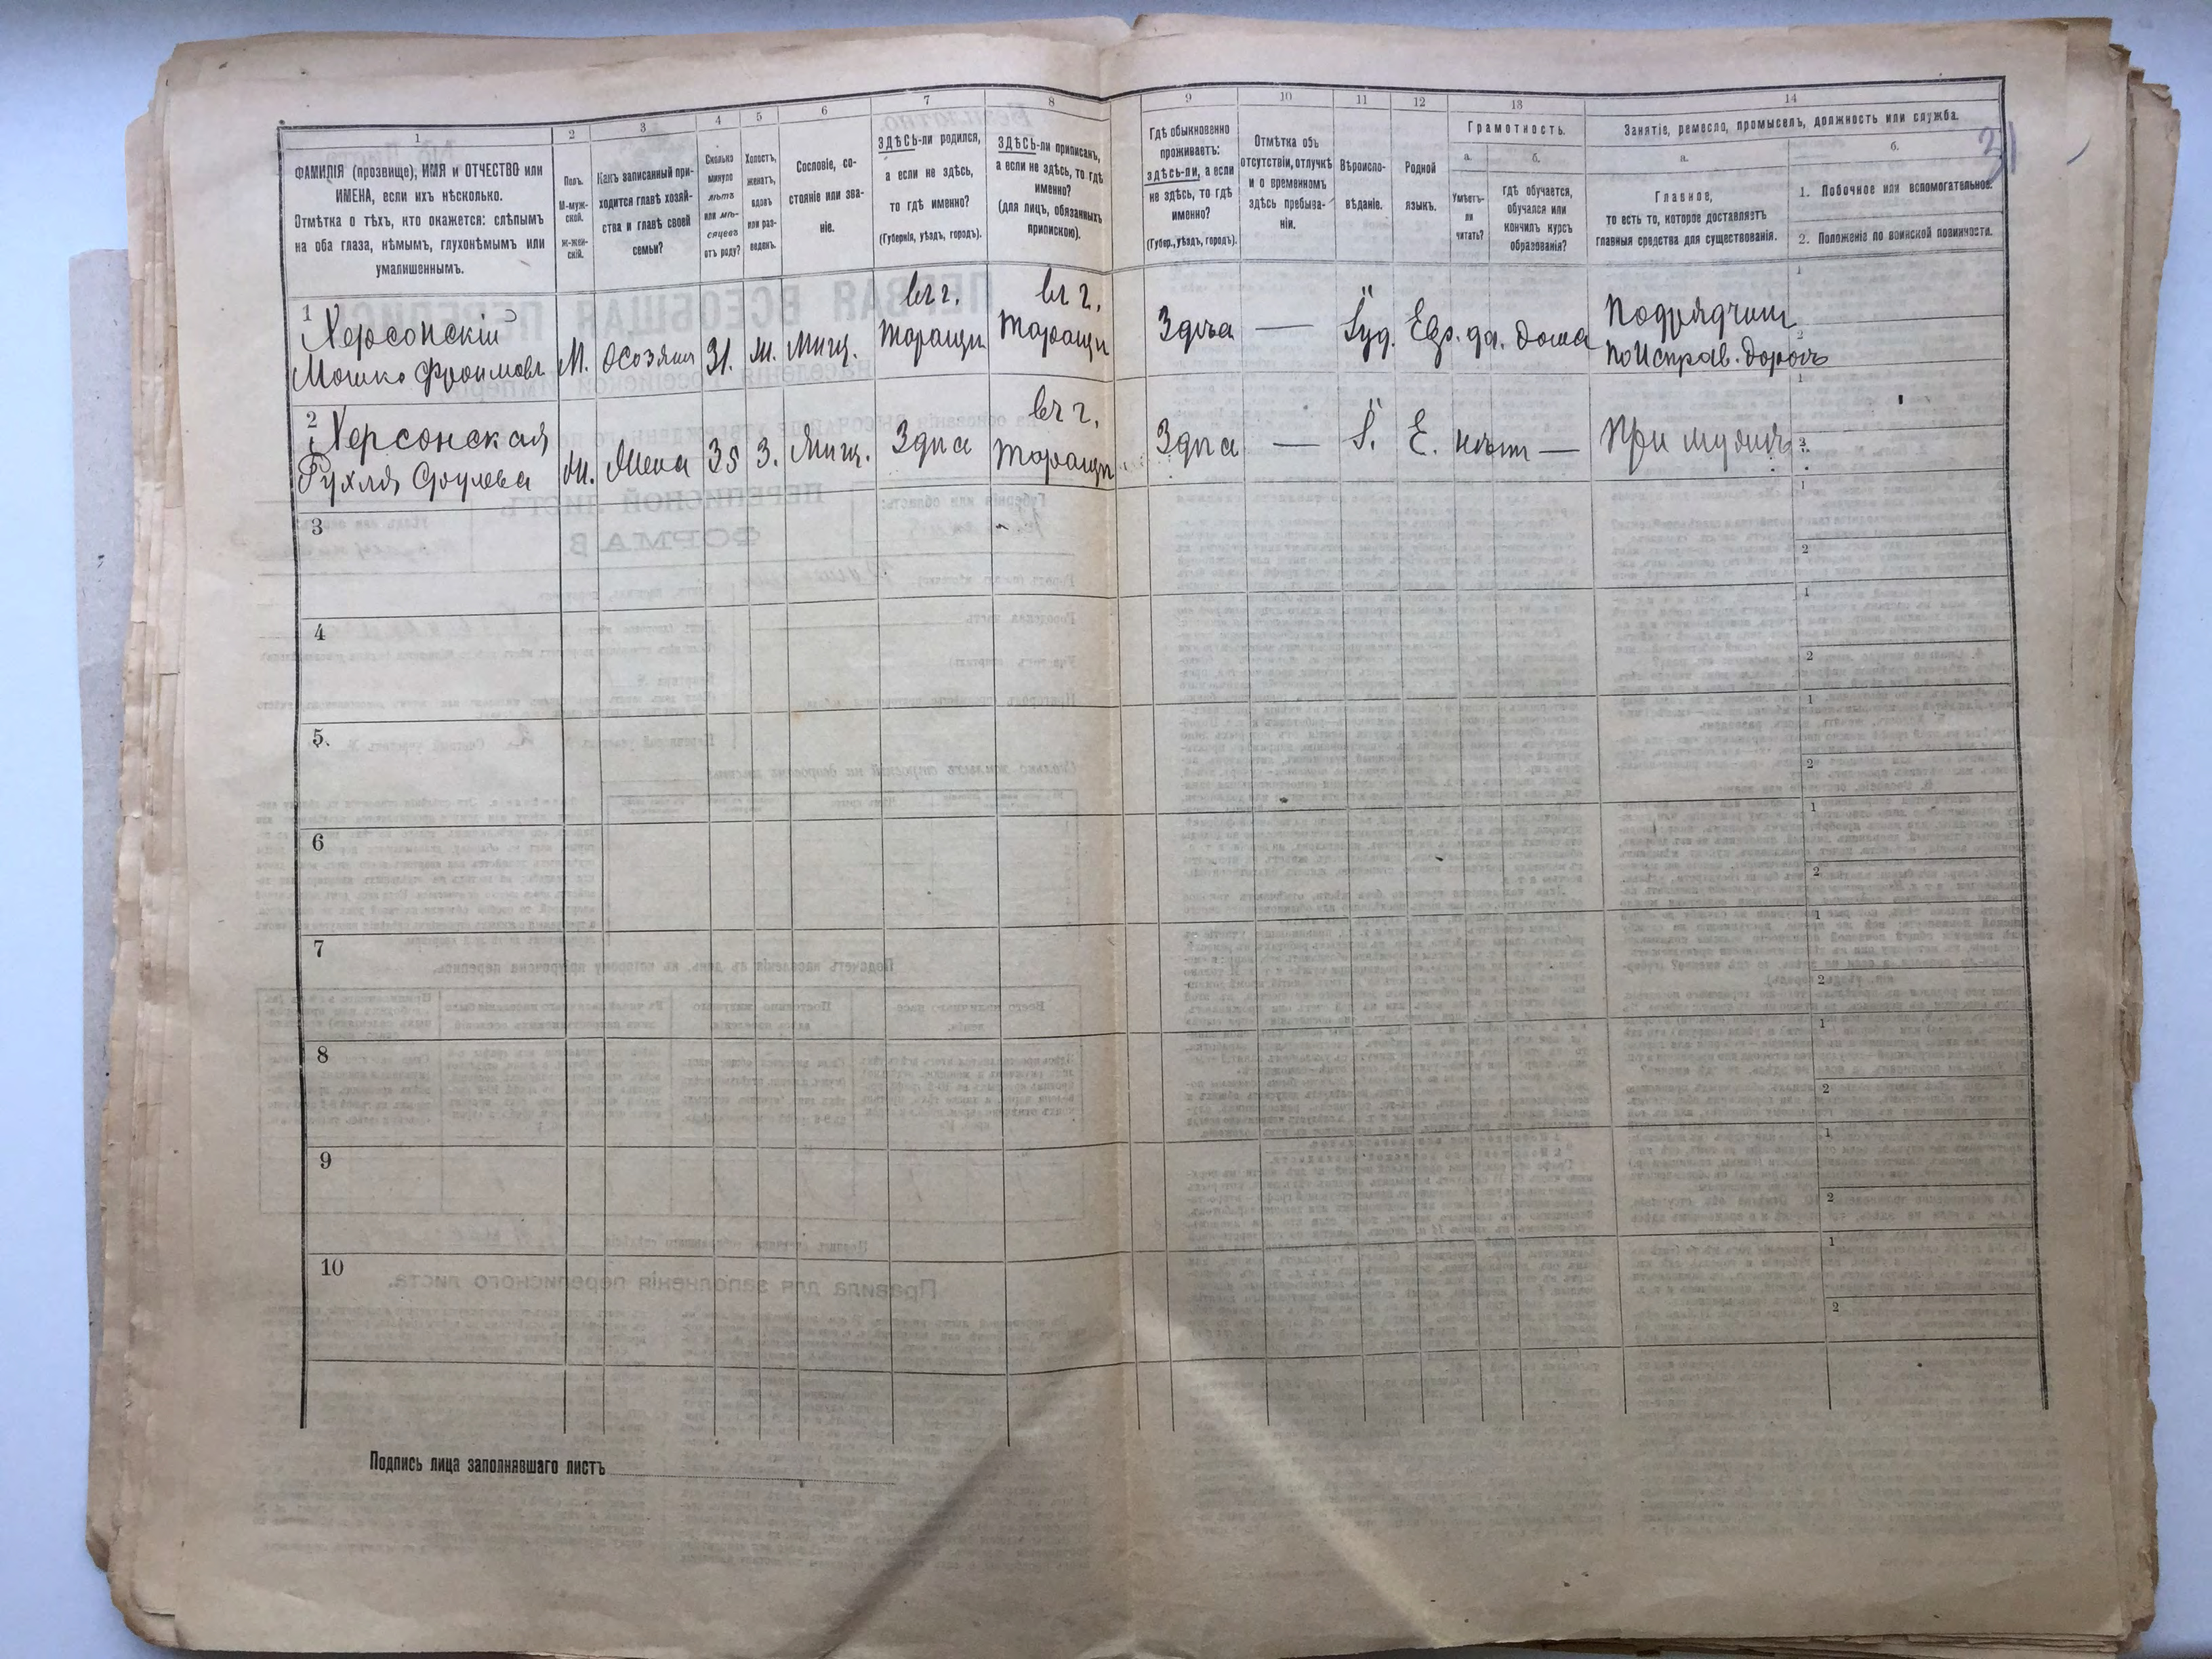 1
ФАМИЛІЯ (прозвище), ИМЯ и ОТЧЕСТВО или
ИМЕНА, если ихъ нѣсколько.
Отмѣтка о тѣхъ, кто окажется: слѣпымъ
на оба глаза, нѣмымъ, глухонѣмымъ или
умалишеннымъ.
2
Полъ.
М-муж-
ской.
Ж-жен-
скій.
3
Какъ записанный при-
ходится главѣ хозяй-
ства и главѣ своей
семьи?
4
Сколько
минуло
лѣтъ
или мѣ-
сяцевъ
отъ роду?
5
Холостъ,
женатъ,
вдовъ
или раз-
веденъ.
6
Сословіе, со-
стояніе или зва-
ніе.
7
ЗДѢСЬ-ли родился,
а если не здѣсь,
то гдѣ именно?
(Губернія, уѣздъ, городъ).
8
ЗДѢСЬ-ли приписанъ,
а если не здѣсь, то гдѣ
именно?
(для лицъ, обязанныхъ
припискою).
9
Гдѣ обыкновенно
проживаетъ:
здѣсь-ли, а если
не здѣсь, то гдѣ
именно?
(Губер., уѣздъ, городъ).
10
Отмѣтка объ
отсутствіи, отлучкѣ
и о временномъ
здѣсь пребыва-
ніи.
11
Вѣроиспо-
вѣданіе.
12
Родной
языкъ.
13
Грамотность.
а.
Умѣетъ-
ли
читать?
б.
Гдѣ обучается,
обучался или
кончилъ курсъ
образованія?
14
Занятіе, ремесло, промыселъ, должность или служба.
31
а.
Главное,
то есть то, которое доставляетъ
главныя средства для существованія.
б.
1. Побочное или вспомогательное.
2. Положеніе по воинской повинности.
1
Херсонскій
Мошко Фроимовъ
М.
31.
Мищ.
въ г.
Таращи
въ г.
Таращи
Здѣсь
—
Іуд.
Евр.
да.
дома
Подрядчик
по исправ. дорогъ
1
2
2
Херсонская
Рухля Срулева
Жена
35
З.
Мищ.
Здѣсь
въ г.
Таращи
Здѣсь
—
І.
Е.
нѣт
—
При мужѣ
1
2
3
1
2
4
1
2
5.
1
2
6
1
2
7
1
2
8
1
2
9
1
2
10
1
2
Подпись лица заполнявшаго листъ